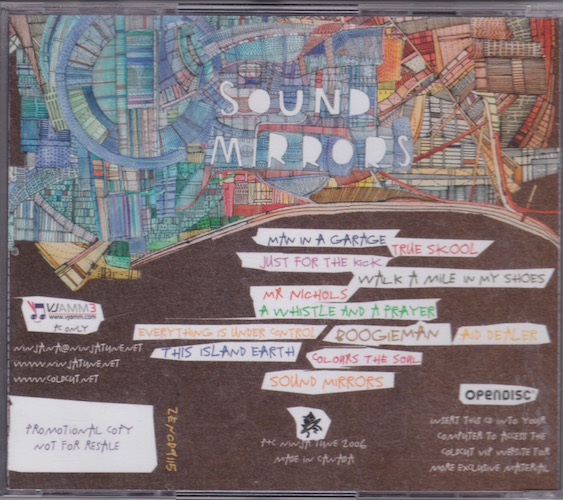 SOUND
MIRRORS
MAN IN A GARAGE
TRUE SKOOL
JUST FOR THE KICK
WALK A MILE IN MY SHOES
MR NICHOLS
A WHISTLE AND A PRAYER
EVERYTHING IS UNDER CONTROL
BOOGIEMAN
AID DEALER
THIS ISLAND EARTH
COLOURS THE SOUL
SOUND MIRRORS
VJAMM3
www.vjamm.com
PC ONLY
NINJANA@NINJATUNE.NET
WWW.NINJATUNE.NET
WWW.COLDCUT.NET
PROMOTIONAL COPY
NOT FOR RESALE
ZENCDP115
P+C NINJA TUNE 2006
MADE IN CANADA
OPENDISC
INSERT THIS CD INTO YOUR
COMPUTER TO ACCESS THE
COLDCUT VIP WEBSITE FOR
MORE EXCLUSIVE MATERIAL